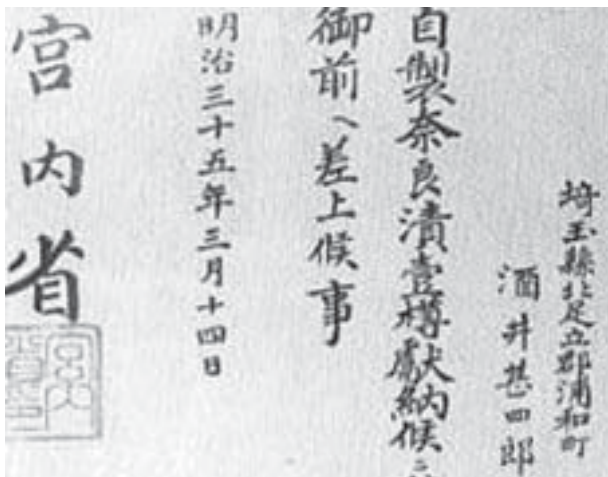 埼玉縣北足立郡浦和町
酒井甚四郎
自製奈良漬壹樽獻納候
御前へ差上候事
明治三十五年三月十四日
宮内省